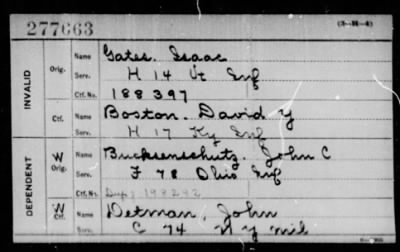 277663
(3-M-4)
INVALID
Orig.
Name Gates, Isaac
Serv. H 14 Vt Inf
Ctf. No. 188397
Ctf.
Name Boston, David Y
Serv. H 17 Ky Inf
DEPENDENT
W Orig.
Name Bucksenschutz, John C
Serv. F 78 Ohio Inf
Ctf. No. Dup; 198292
W Ctf.
Name Detman, John
Serv. C 74 N Y Mil